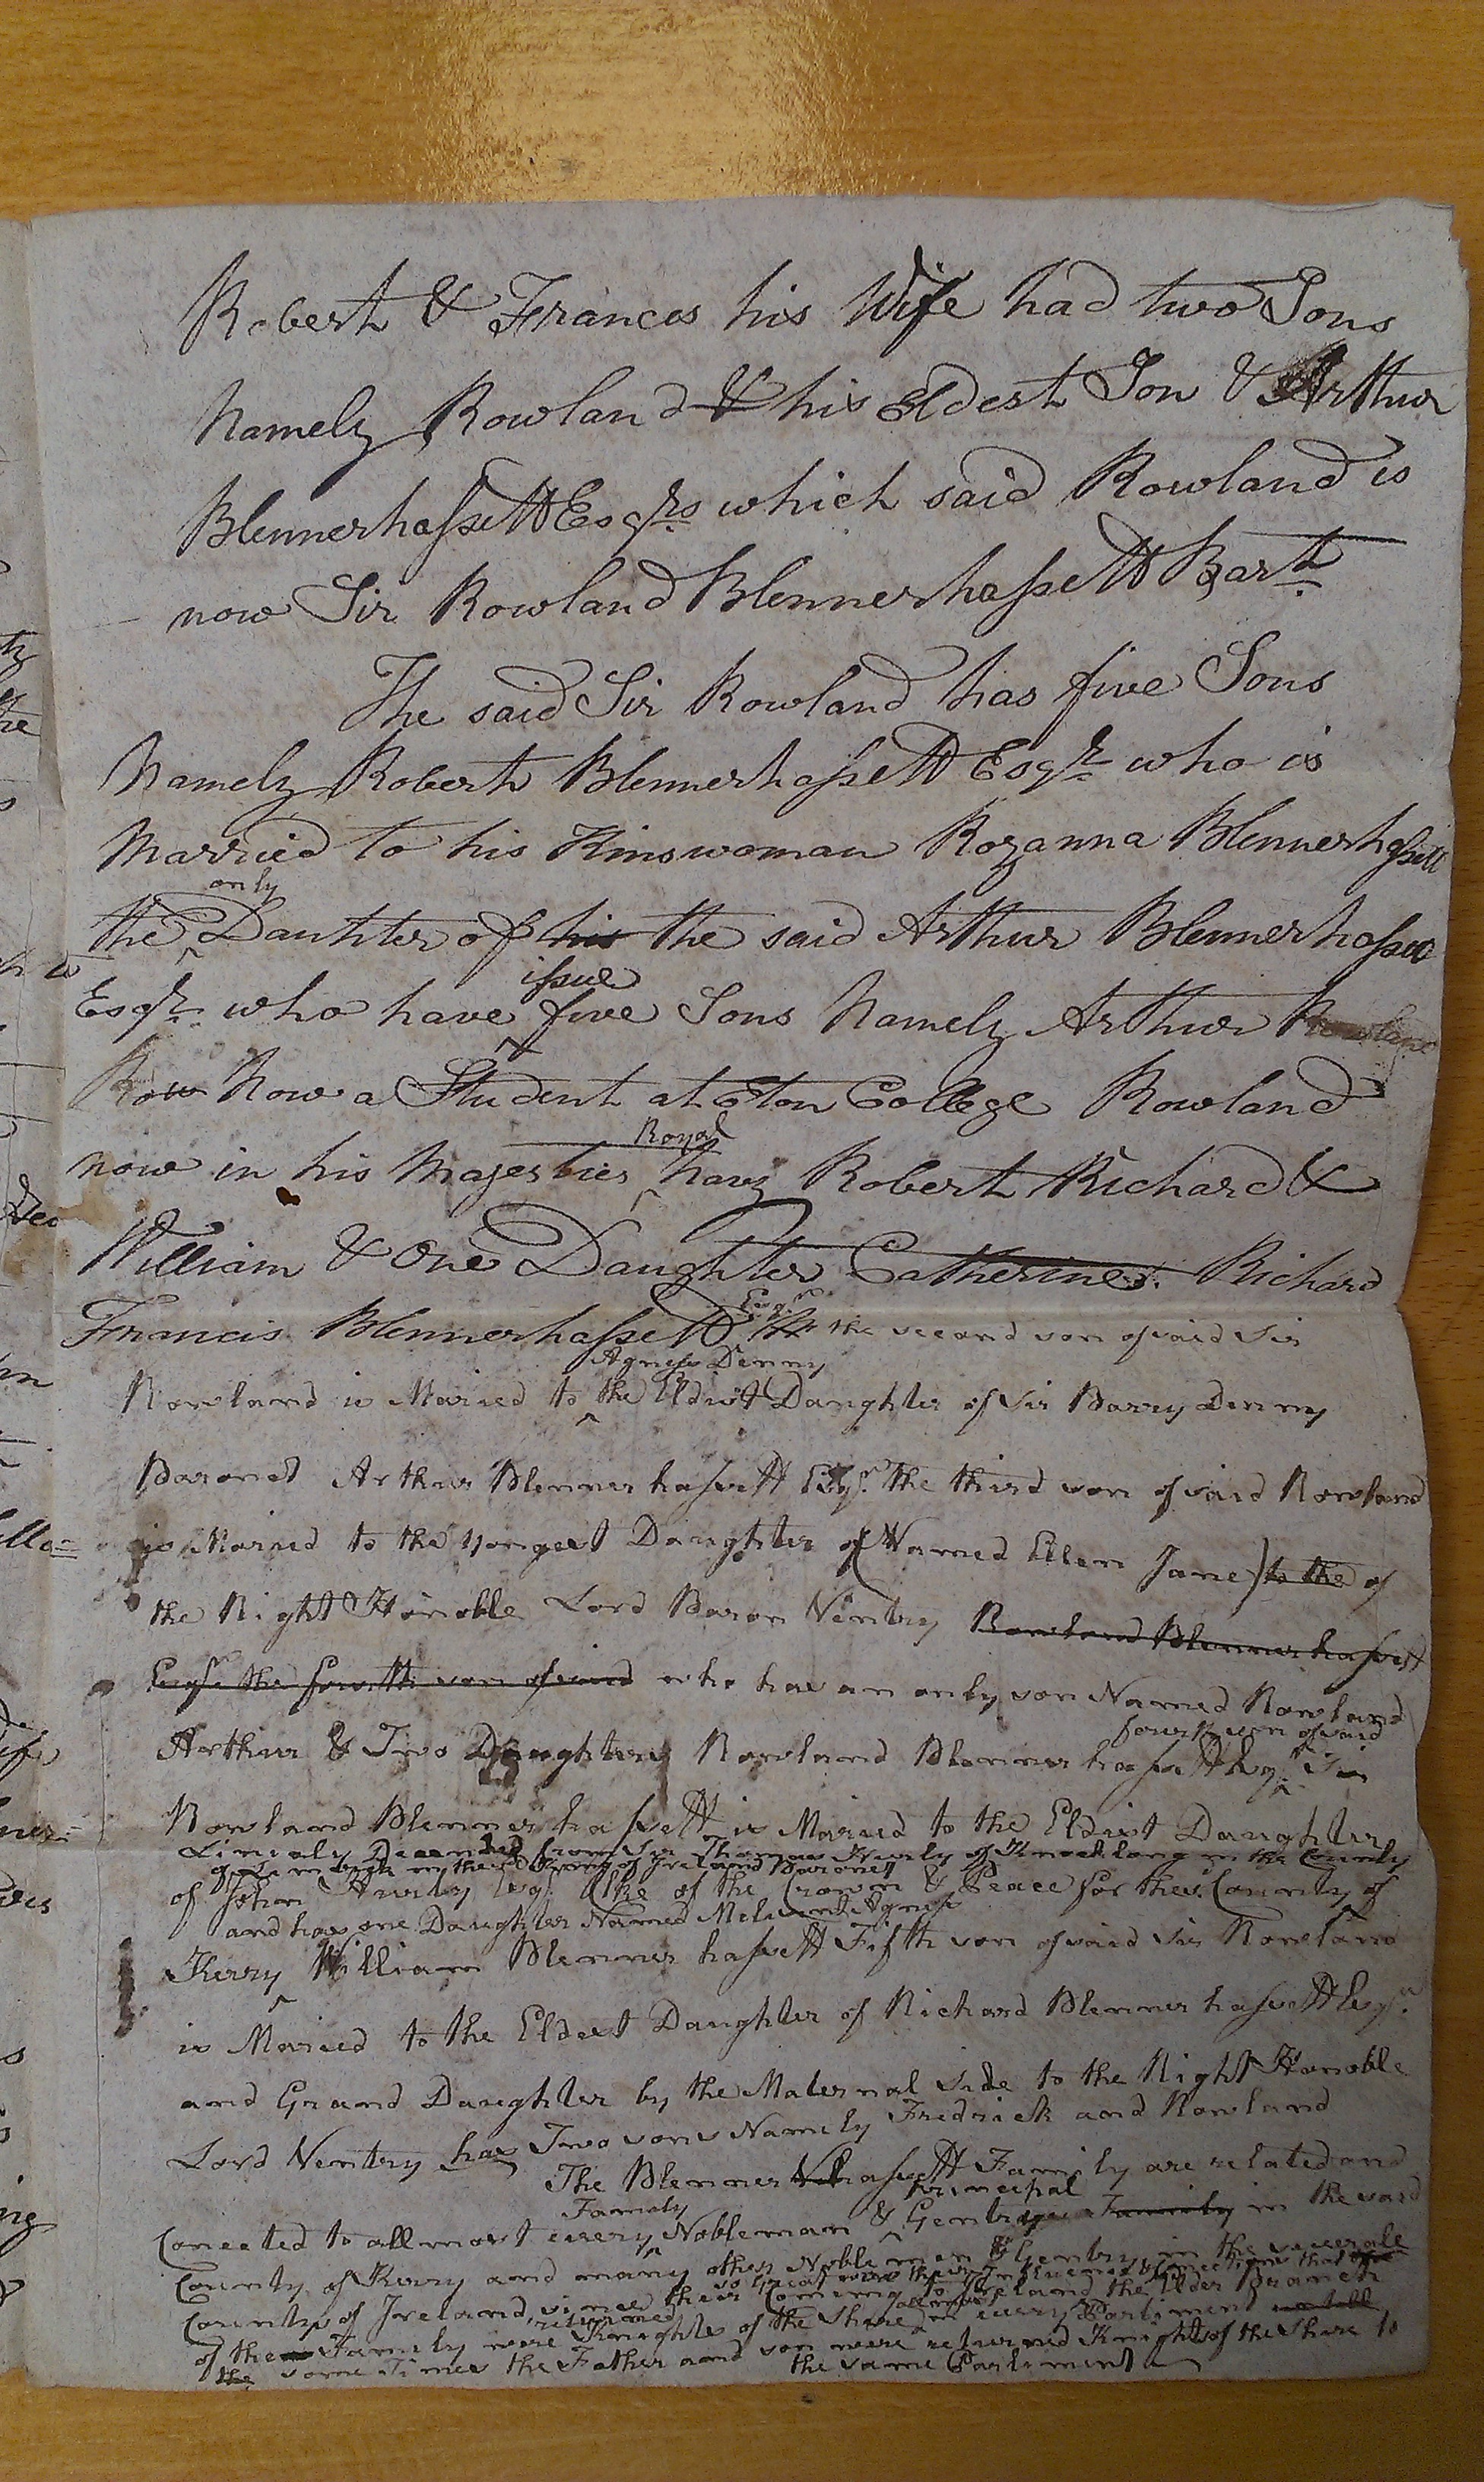 Robert & Frances his Wife had two Sons
Namely Rowland & his Eldest Son & Arthur
Blennerhassett Esqrs. which said Rowland is
now Sir Rowland Blennerhassett Bart.
The said Sir Rowland has five Sons
Namely Robert Blennerhassett Esqr. who is
Married to his Kinswoman Rozanna Blennerhassett
only
the Dauhter of his the said Arthur Blennerhassett
issue
Esqr. who have five Sons Namely Arthur Rowland
Row Now a Student at Eton College Rowland
Royal
now in his Majesties Navy Robert Richard &
William & One Daughter Catherine. Richard
Esqr.
Francis Blennerhassett the second son of said Sir
Agness Denny
Rowland is Maried to the Eldist Daughter of Sir Barry Denny
Baronet Arthur Blennerhassett Esqr. the third son of said Rowland
is Maried to the yongest Daughter of (Named Ellen Jane) to the of
the Right Honoble Lord Baron Ventry Rowland Blennerhassett
Esqr. the fourth son of said who has an only son Named Rowland
fourth son of said
Arthur & Two Daughters Rowland Blennerhassett Esqr. Sir
Rowland Blennerhassett is Maried to the Eldist Daughter
Linialy Decended from Sir Thomas Hurly of Knocklong in the County
of Limbrick in the Kring of Ireland Baronet
of John Hurly Esqr. Clke of the Crown & Peace for the County of
and has one Daughter Named Melisent Agness
Kerry William Blennerhassett Fifth son of said Sir Rowland
is Maried to the Eldest Daughter of Richard Blennerhassett Esqr.
and Grand Daughter by the Maternal side to the Right Honoble
Lord Ventry has Two sons Namely Fredrick and Rowland
The Blennerhassett Family are related and
Family principal
Conected to allmost every Nobleman & Gentrys Family in the said
County of Kerry and many other Noble men & Gentry in the severale
so Great were their Influence & Conections that
Countys of Ireland, since their Coming to Ireland the Elder Branch
returned allmost
of the Family were Knights of the Shire in every Parliment
the some Times the Father and son were returned Knights of the Shire to
the same Parliment